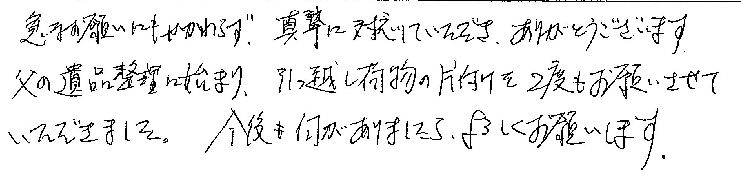 急なお願いにもかかわらず、真摯に対応していただき、ありがとうございます
父の遺品整理に始まり、引っ越し荷物の片付けを2度もお願いさせて
いただきました。 今後も何がありましたら、よろしくお願いします.